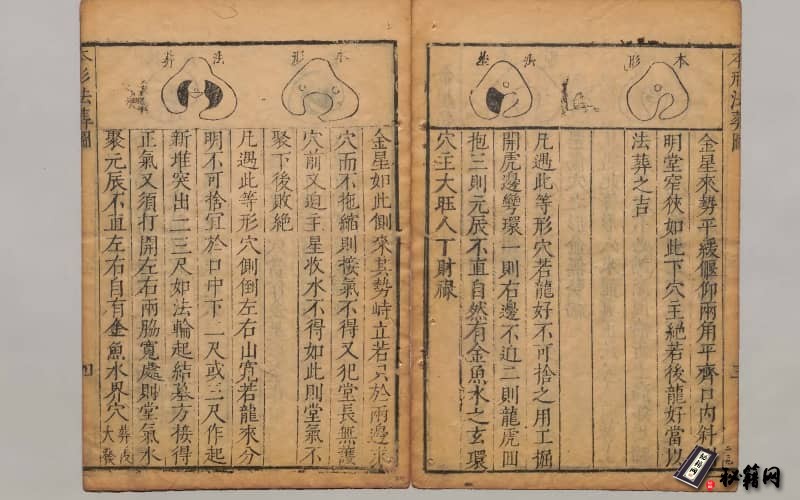 本形
法葬
金星來勢平緩偃仰兩角平齊口內斜
明堂窄狹如此下穴主絕若後龍好當以
法葬之吉
凡遇此等形穴若龍好不可捨之用工掘
開虎邊彎環一則右邊不迫二則龍虎回
抱三則元辰不直自然有金魚水之玄環
穴主大旺人丁財祿
本形法葬圖
三
本形
法葬
金星如此側來其勢峙立若只於兩邊求
穴而不拖縮則接氣不得又犯堂長無護
穴前又迫主星收水不得如此則堂氣不
聚下後敗絕
凡遇此等形穴側倒左右山寬若龍來分
明不可捨宜於口中下一尺或三尺作起
新堆突出二三尺如法輪起結墓方接得
正氣又須打開左右兩脇寬處則堂氣水
聚元辰不直左右自有金魚水界穴葬後大發
本形法葬圖
四
秘籍网